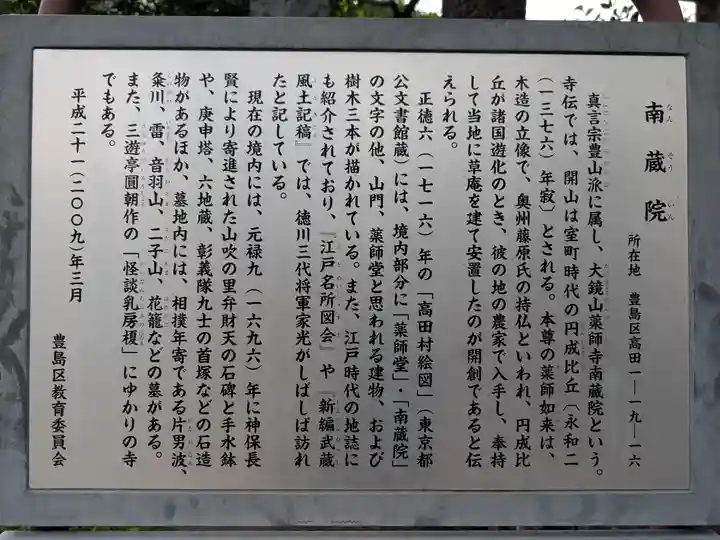 南蔵院
なんぞういん
所在地　豊島区高田一―一九―一六
真言宗豊山派に属し、大鏡山薬師寺南蔵院という。
寺伝では、開山は室町時代の円成比丘〔永和二
（一三七六）年寂〕とされる。本尊の薬師如来は、
木造の立像で、奥州藤原氏の持仏といわれ、円成比
丘が諸国遊化のとき、彼の地の農家で入手し、奉持
して当地に草庵を建て安置したのが開創であると伝
えられる。
正徳六（一七一六）年の「高田村絵図」（東京都
公文書館蔵）には、境内部分に「薬師堂」・「南蔵院」
の文字の他、山門、薬師堂と思われる建物、および
樹木三本が描かれている。また、江戸時代の地誌に
も紹介されており、『江戸名所図会』や『新編武蔵
風土記稿』では、徳川三代将軍家光がしばしば訪れ
たと記している。
現在の境内には、元禄九（一六九六）年に神保長
賢により寄進された山吹の里弁財天の石碑と手水鉢
や、庚申塔、六地蔵、彰義隊九士の首塚などの石造
物があるほか、墓地内には、相撲年寄である片男波、
粂川、雷、音羽山、二子山、花籠などの墓がある。
また、三遊亭圓朝作の「怪談乳房榎」にゆかりの寺
でもある。
平成二十一（二〇〇九）年三月
豊島区教育委員会